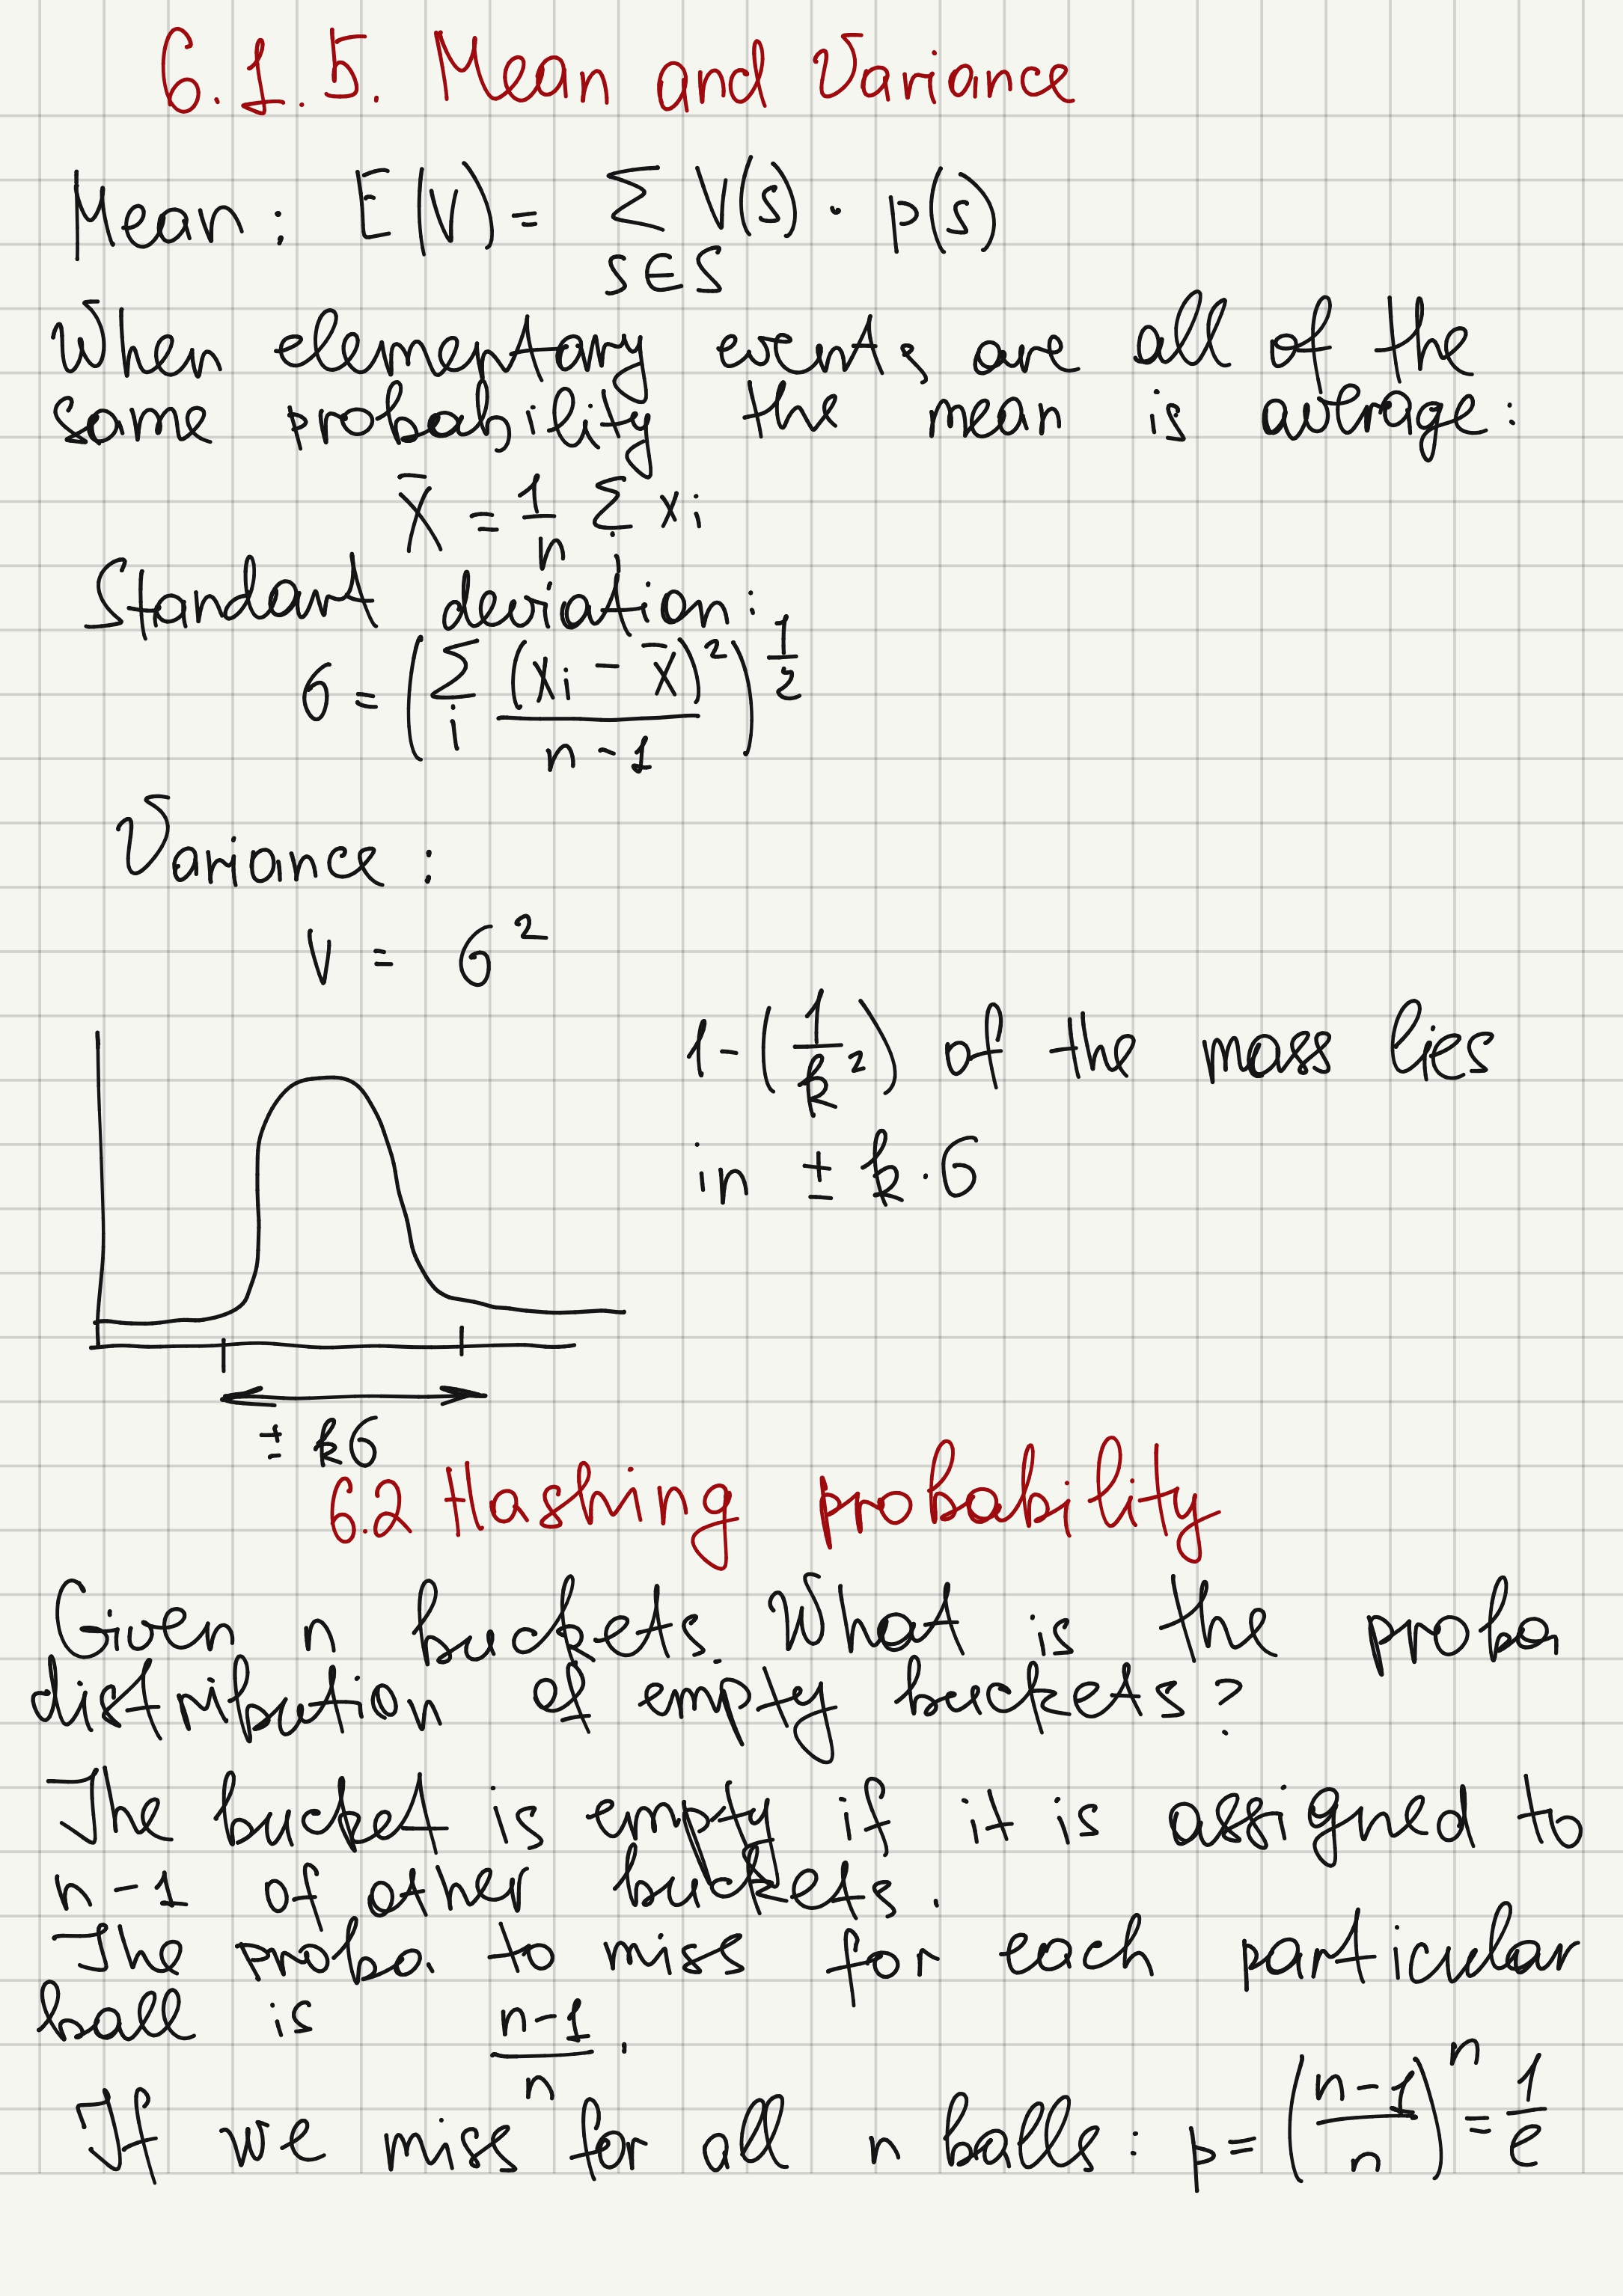 6.1.5. Mean and Variance
Mean: E(V) = ∑ V(s) · p(s)
s∈S
When elementary events are all of the
same probability the mean is average:
X̄ = 1/n ∑ xi
i
Standart deviation:
σ = (∑i (xi - x̄)² / (n-1))^(1/2)
Variance:
V = σ²
1-(1/k²) of the mass lies
in ± k·σ
± kσ
6.2 Hashing probability
Given n buckets. What is the proba
distribution of empty buckets?
The bucket is empty if it is assigned to
n-1 of other buckets.
The proba. to miss for each particular
ball is (n-1)/n.
If we miss for all n balls: p = ((n-1)/n)^n = 1/e